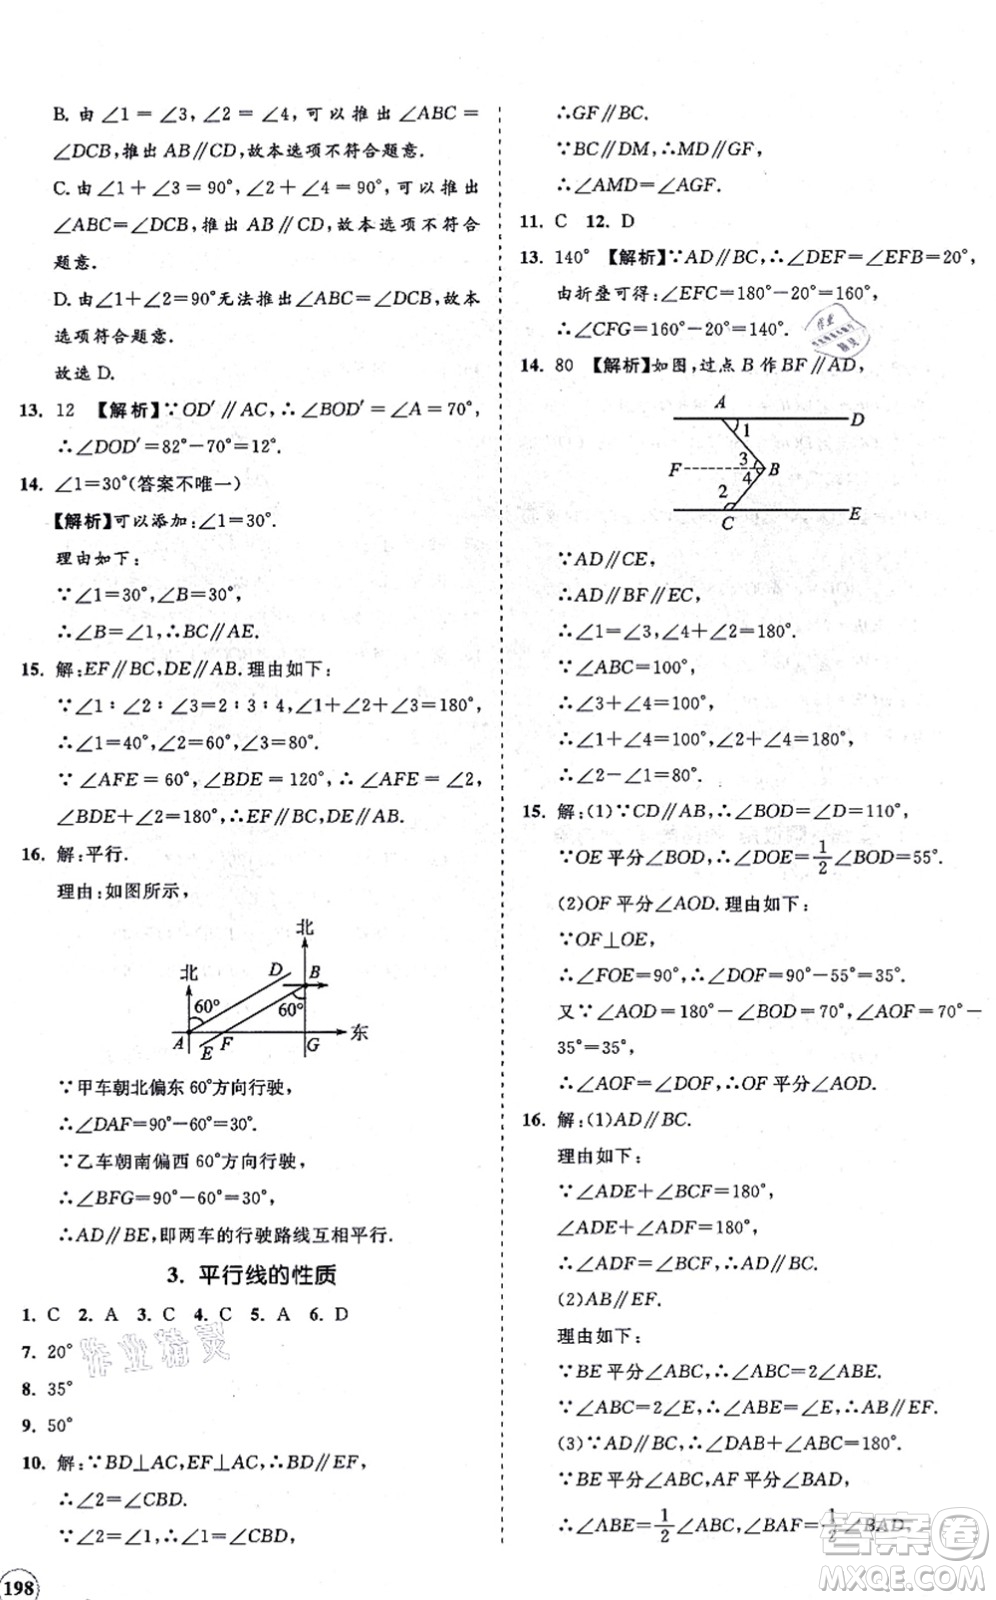 B. 由 ∠1 = ∠3, ∠2 = ∠4, 可以推出 ∠ABC =
∠DCB, 推出 AB∥CD, 故本选项不符合题意.
C. 由 ∠1 + ∠3 = 90°, ∠2 + ∠4 = 90°, 可以推出
∠ABC=∠DCB, 推出 AB∥CD, 故本选项不符合
题意.
D. 由∠1+∠2=90°无法推出∠ABC=∠DCB, 故本
选项符合题意.
故选 D.
13. 12 【解析】∵OD′∥AC,∴∠BOD′=∠A=70°,
∴∠DOD′=82°-70°=12°.
14. ∠1=30°(答案不唯一)
【解析】可以添加:∠1=30°.
理由如下:
∵∠1=30°,∠B=30°,
∴∠B=∠1,∴BC∥AE.
15. 解:EF∥BC,DE∥AB.理由如下:
∵∠1∶∠2∶∠3=2∶3∶4,∠1+∠2+∠3=180°,
∴∠1=40°,∠2=60°,∠3=80°.
∵ ∠AFE = 60°, ∠BDE = 120°, ∴ ∠AFE = ∠2,
∠BDE+∠2=180°,∴EF∥BC,DE∥AB.
16. 解:平行.
理由:如图所示,
北
北
D
B
60°
60°
A
E
F
G
东
∵甲车朝北偏东 60°方向行驶,
∴∠DAF=90°-60°=30°.
∵乙车朝南偏西 60°方向行驶,
∴∠BFG=90°-60°=30°,
∴AD∥BE,即两车的行驶路线互相平行.
3. 平行线的性质
1. C 2. A 3. C 4. C 5. A 6. D
7. 20°
8. 35°
9. 50°
10. 解:∵BD⊥AC,EF⊥AC,∴BD∥EF,
∴∠2=∠CBD.
∵∠2=∠1,∴∠1=∠CBD,
198
∴GF∥BC.
∵BC∥DM,∴MD∥GF,
∴∠AMD=∠AGF.
11. C 12. D
13. 140° 【解析】∵AD∥BC,∴∠DEF=∠EFB=20°,
由折叠可得:∠EFC=180°-20°=160°,
∴∠CFG=160°-20°=140°.
14. 80 【解析】如图,过点 B 作 BF∥AD,
A
D
1
F
3
4
B
2
C
E
∵AD∥CE,
∴AD∥BF∥EC,
∴∠1=∠3,∠4+∠2=180°.
∵∠ABC=100°,
∴∠3+∠4=100°,
∴∠1+∠4=100°,∠2+∠4=180°,
∴∠2-∠1=80°.
15. 解:(1)∵CD∥AB,∴∠BOD=∠D=110°.
∵OE 平分∠BOD,∴∠DOE=1/2∠BOD=55°.
(2)OF 平分∠AOD.理由如下:
∵OF⊥OE,
∴∠FOE=90°,∴∠DOF=90°-55°=35°.
又∵∠AOD=180°-∠BOD=70°,∴∠AOF=70°-
35°=35°,
∴∠AOF=∠DOF,∴OF 平分∠AOD.
16. 解:(1)AD∥BC.
理由如下:
∵∠ADE+∠BCF=180°,
∠ADE+∠ADF=180°,
∴∠ADF=∠BCF,∴AD∥BC.
(2)AB∥EF.
理由如下:
∵BE 平分∠ABC,∴∠ABC=2∠ABE.
∵∠ABC=2∠E,∴∠ABE=∠E,∴AB∥EF.
(3)∵AD∥BC,∴∠DAB+∠ABC=180°.
∵BE 平分∠ABC,AF 平分∠BAD,
∴∠ABE=1/2∠ABC,∠BAF=1/2∠BAD,
作业精灵
答案圈
MXQE.COM